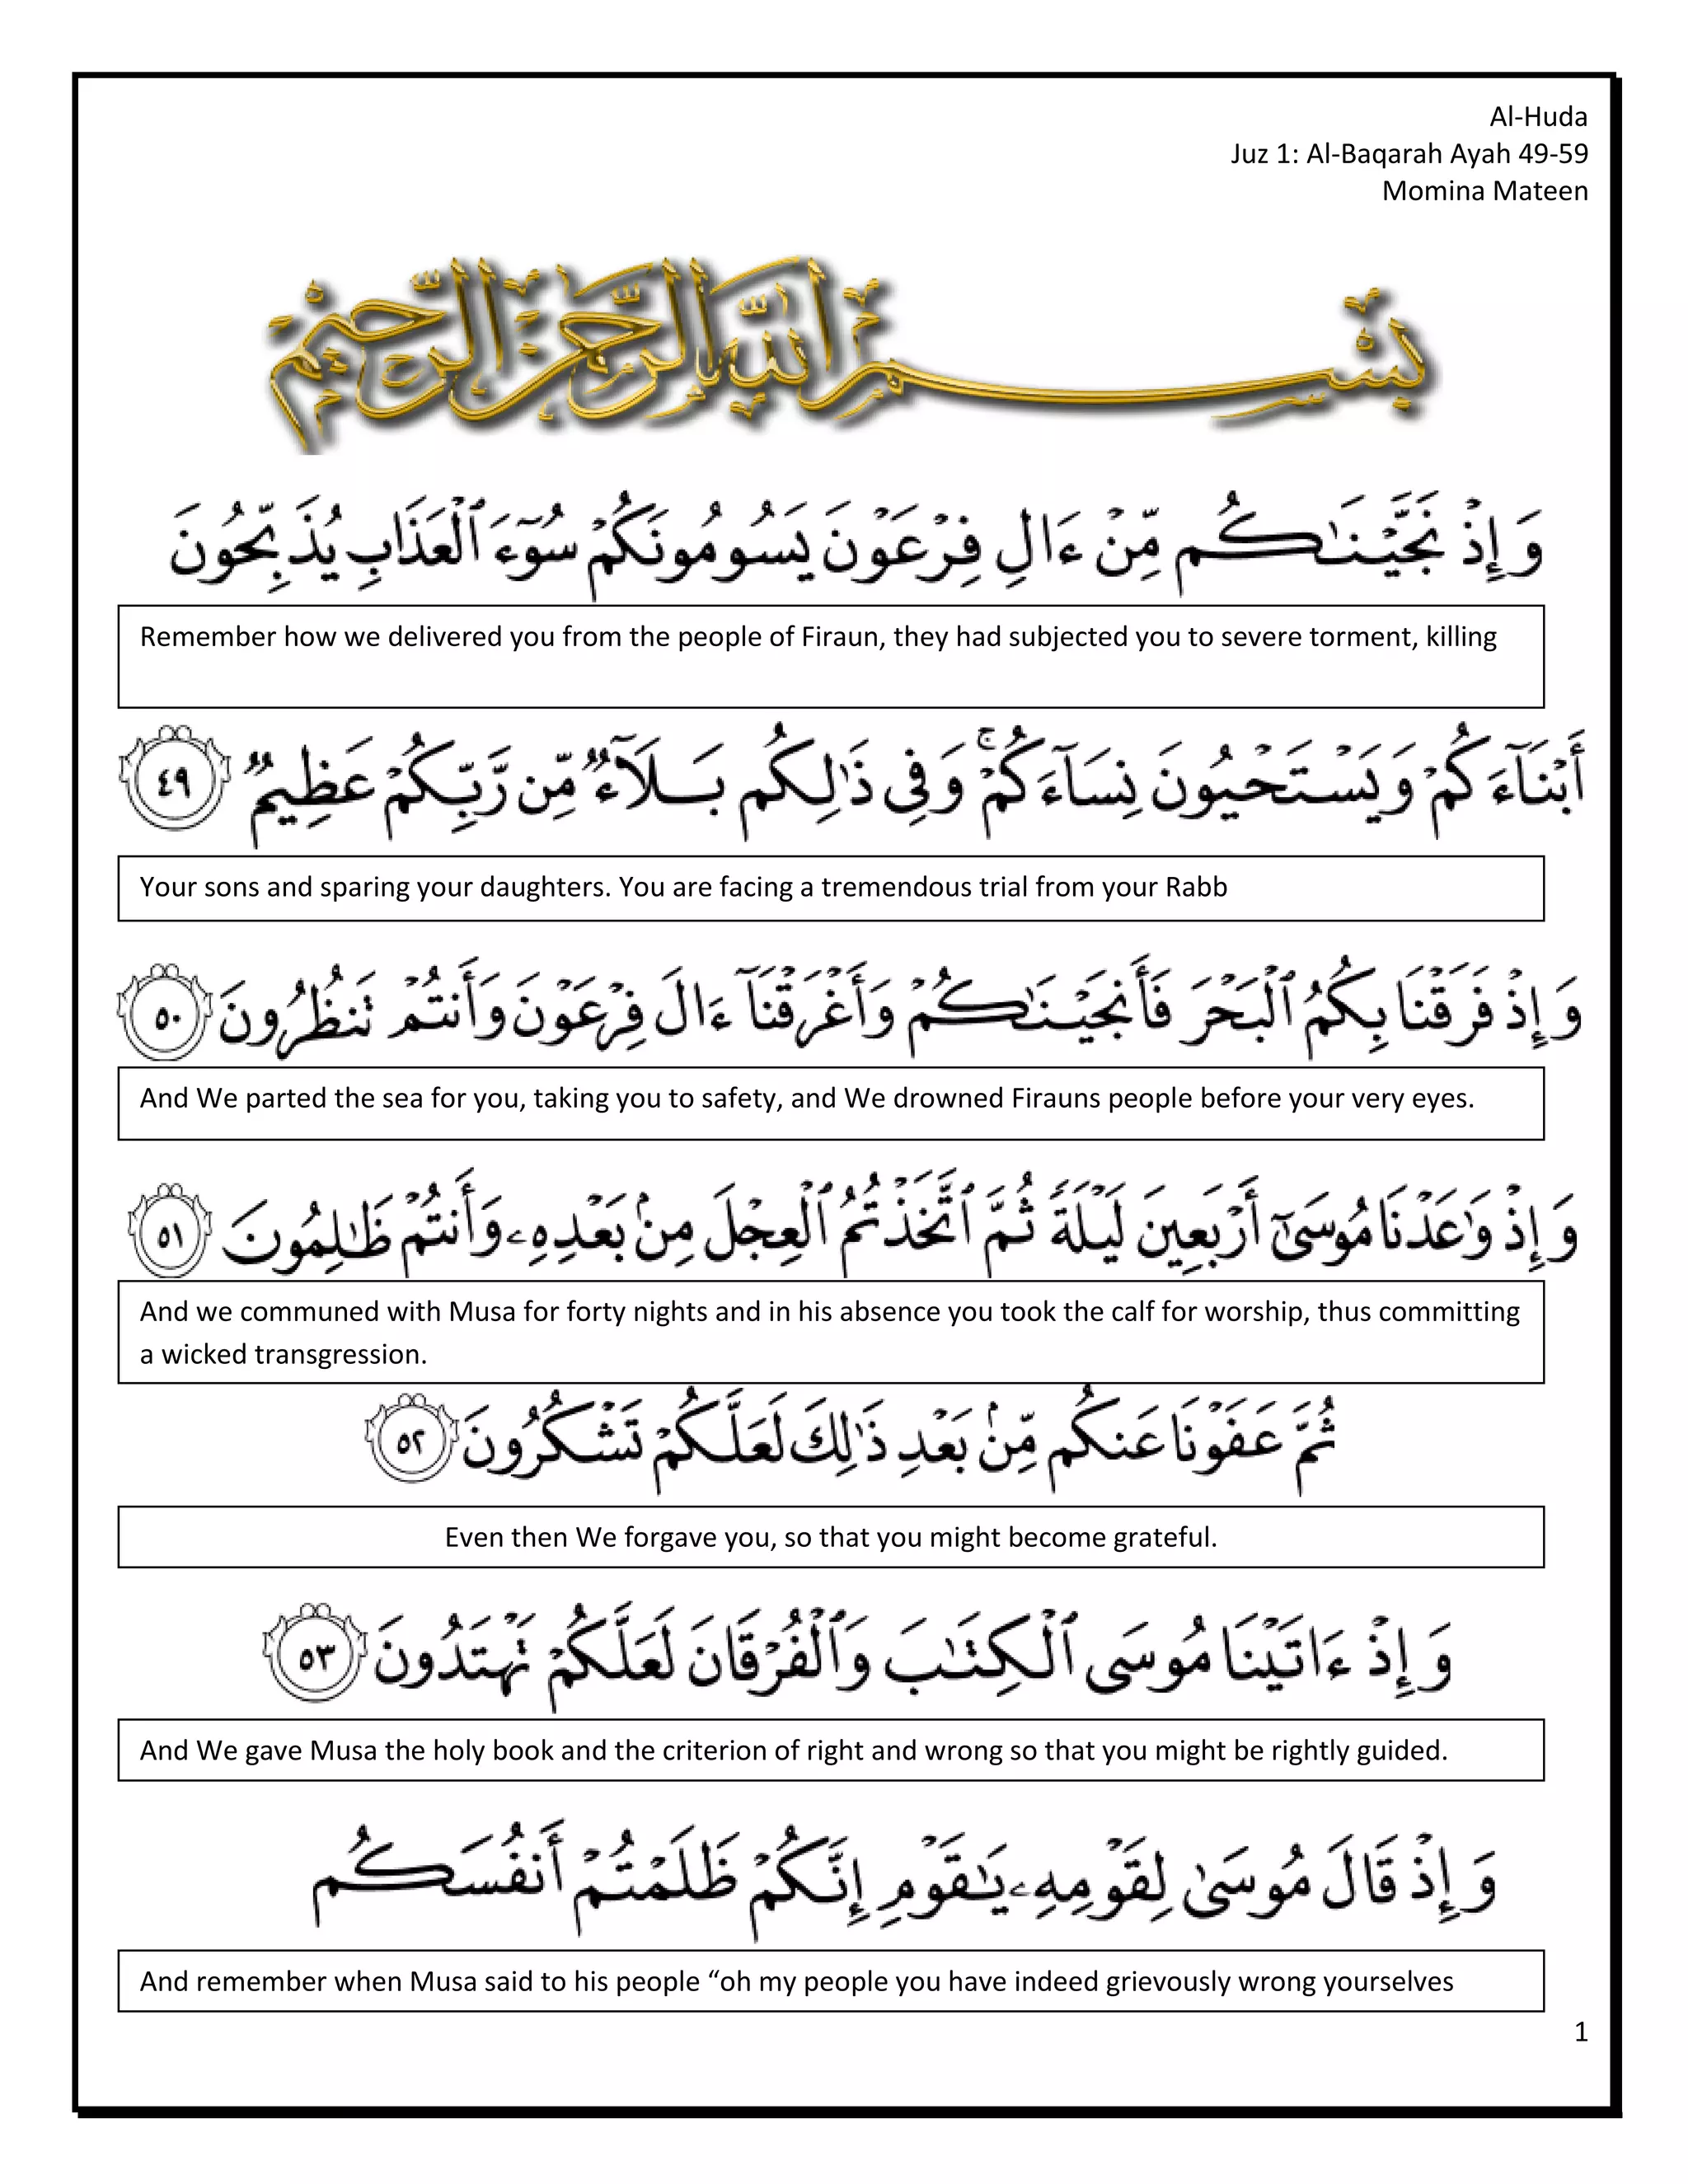 Al-Huda
Juz 1: Al-Baqarah Ayah 49-59
Momina Mateen
بِسْمِ اللَّهِ الرَّحْمَٰنِ الرَّحِيمِ
وَإِذْ نَجَّيْنَٰكُم مِّنْ ءَالِ فِرْعَوْنَ يَسُومُونَكُمْ سُوٓءَ ٱلْعَذَابِ يُذَبِّحُونَ
Remember how we delivered you from the people of Firaun, they had subjected you to severe torment, killing
أَبْنَآءَكُمْ وَيَسْتَحْيُونَ نِسَآءَكُمْ ۚ وَفِى ذَٰلِكُم بَلَآءٌ مِّن رَّبِّكُمْ عَظِيمٌ ٤٩
Your sons and sparing your daughters. You are facing a tremendous trial from your Rabb
وَإِذْ فَرَقْنَا بِكُمُ ٱلْبَحْرَ فَأَنجَيْنَٰكُمْ وَأَغْرَقْنَآ ءَالَ فِرْعَوْنَ وَأَنتُمْ تَنظُرُونَ ٥٠
And We parted the sea for you, taking you to safety, and We drowned Firauns people before your very eyes.
وَإِذْ وَٰعَدْنَا مُوسَىٰٓ أَرْبَعِينَ لَيْلَةً ثُمَّ ٱتَّخَذْتُمُ ٱلْعِجْلَ مِنۢ بَعْدِهِۦ وَأَنتُمْ ظَٰلِمُونَ ٥١
And we communed with Musa for forty nights and in his absence you took the calf for worship, thus committing
a wicked transgression.
ثُمَّ عَفَوْنَا عَنكُم مِّنۢ بَعْدِ ذَٰلِكَ لَعَلَّكُمْ تَشْكُرُونَ ٥٢
Even then We forgave you, so that you might become grateful.
وَإِذْ ءَاتَيْنَا مُوسَى ٱلْكِتَٰبَ وَٱلْفُرْقَانَ لَعَلَّكُمْ تَهْتَدُونَ ٥٣
And We gave Musa the holy book and the criterion of right and wrong so that you might be rightly guided.
وَإِذْ قَالَ مُوسَىٰ لِقَوْمِهِۦ يَٰقَوْمِ إِنَّكُمْ ظَلَمْتُمْ أَنفُسَكُم
And remember when Musa said to his people “oh my people you have indeed grievously wrong yourselves
1